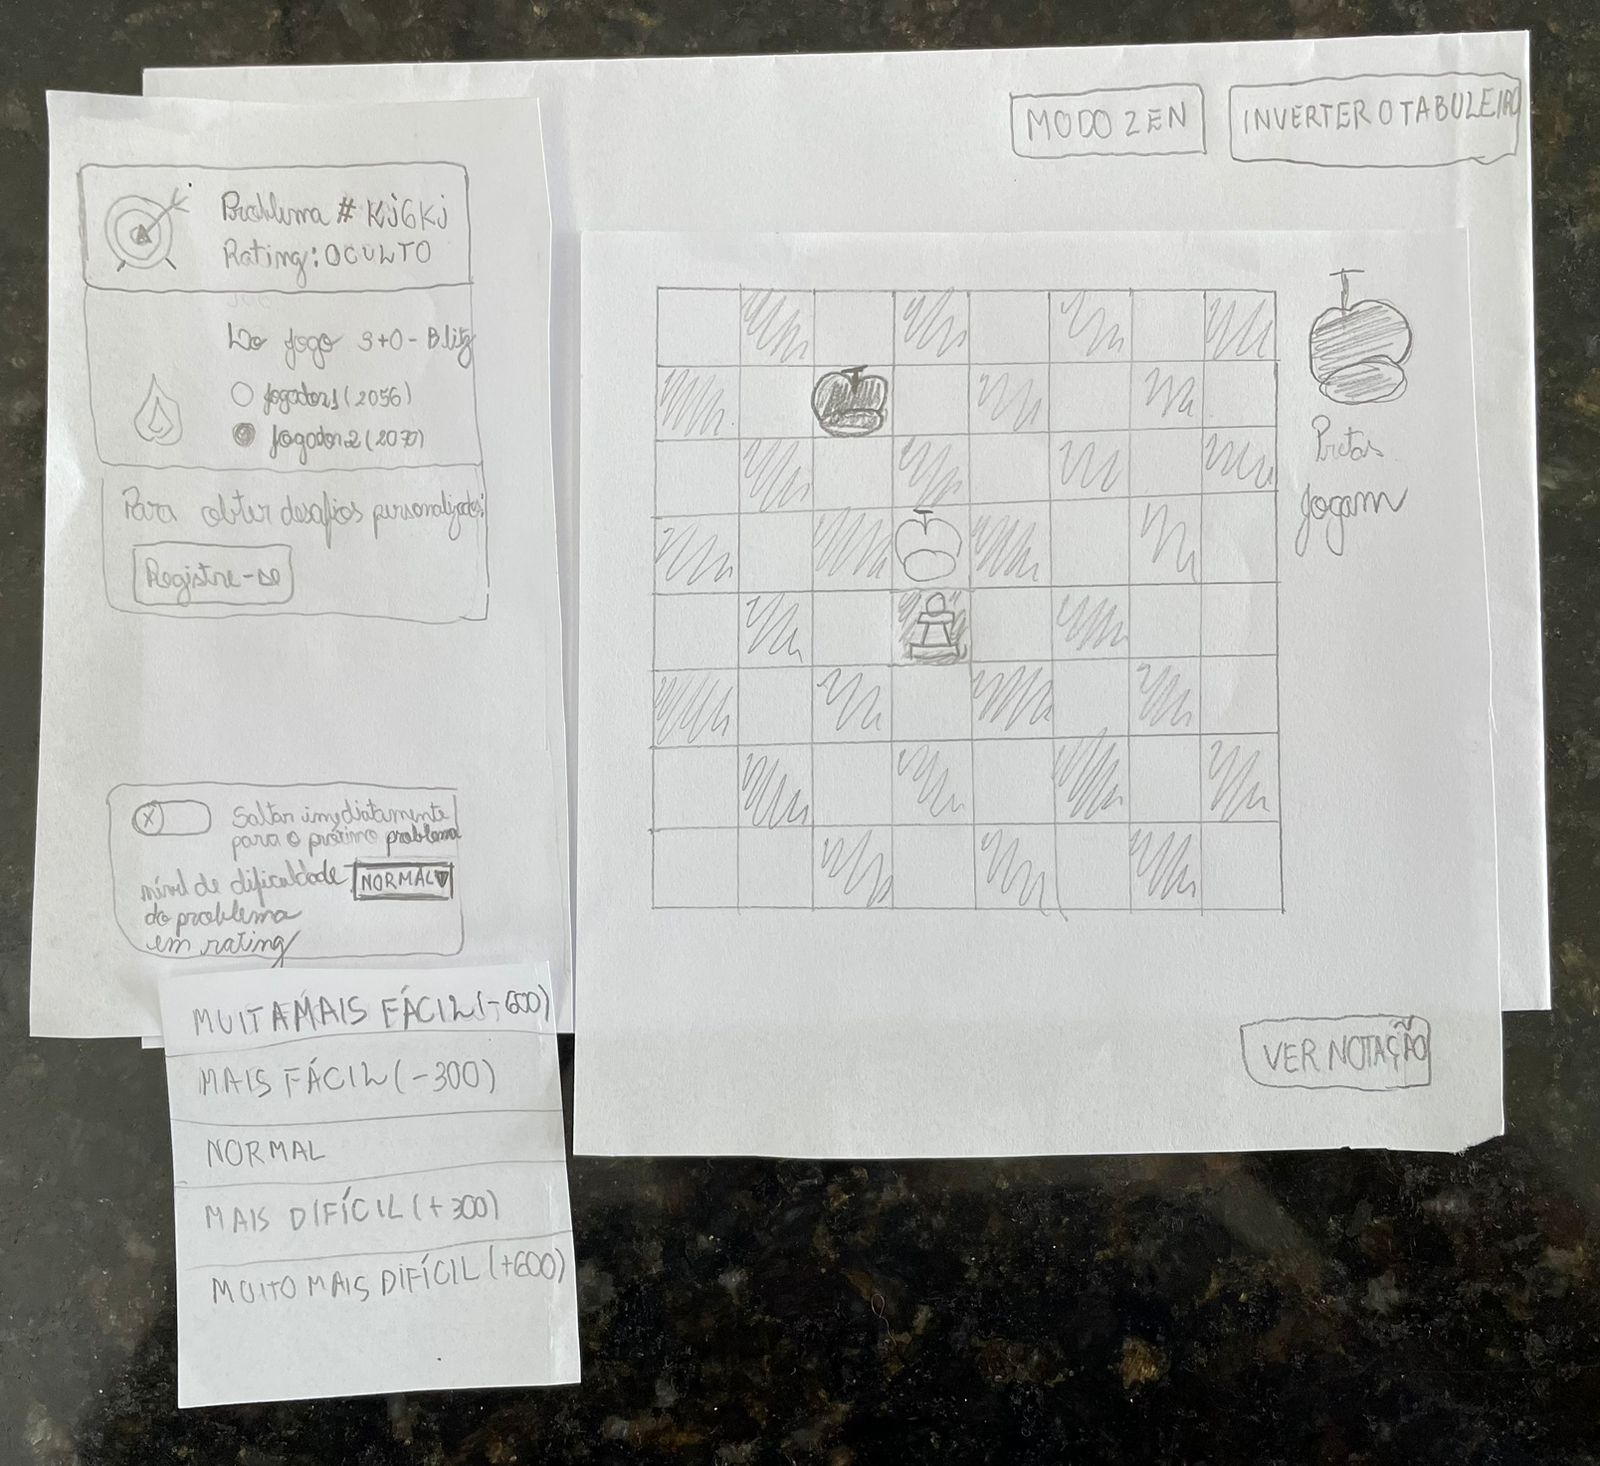 MODO ZEN
INVERTER O TABULEIRO
Problema # Kj6Kj
Rating: OCULTO
Do jogo 3+0 - Blitz
Jogador1 (2056)
Jogador2 (2070)
Para obter desafios personalizados:
Registre-se
Pretas
Jogam
Saltar imediatamente
para o próximo problema
nível de dificuldade NORMAL
do problema
em rating
MUITA MAIS FÁCIL (-600)
MAIS FÁCIL (-300)
NORMAL
MAIS DIFÍCIL (+300)
MUITO MAIS DIFÍCIL (+600)
VER NOTAÇÃO